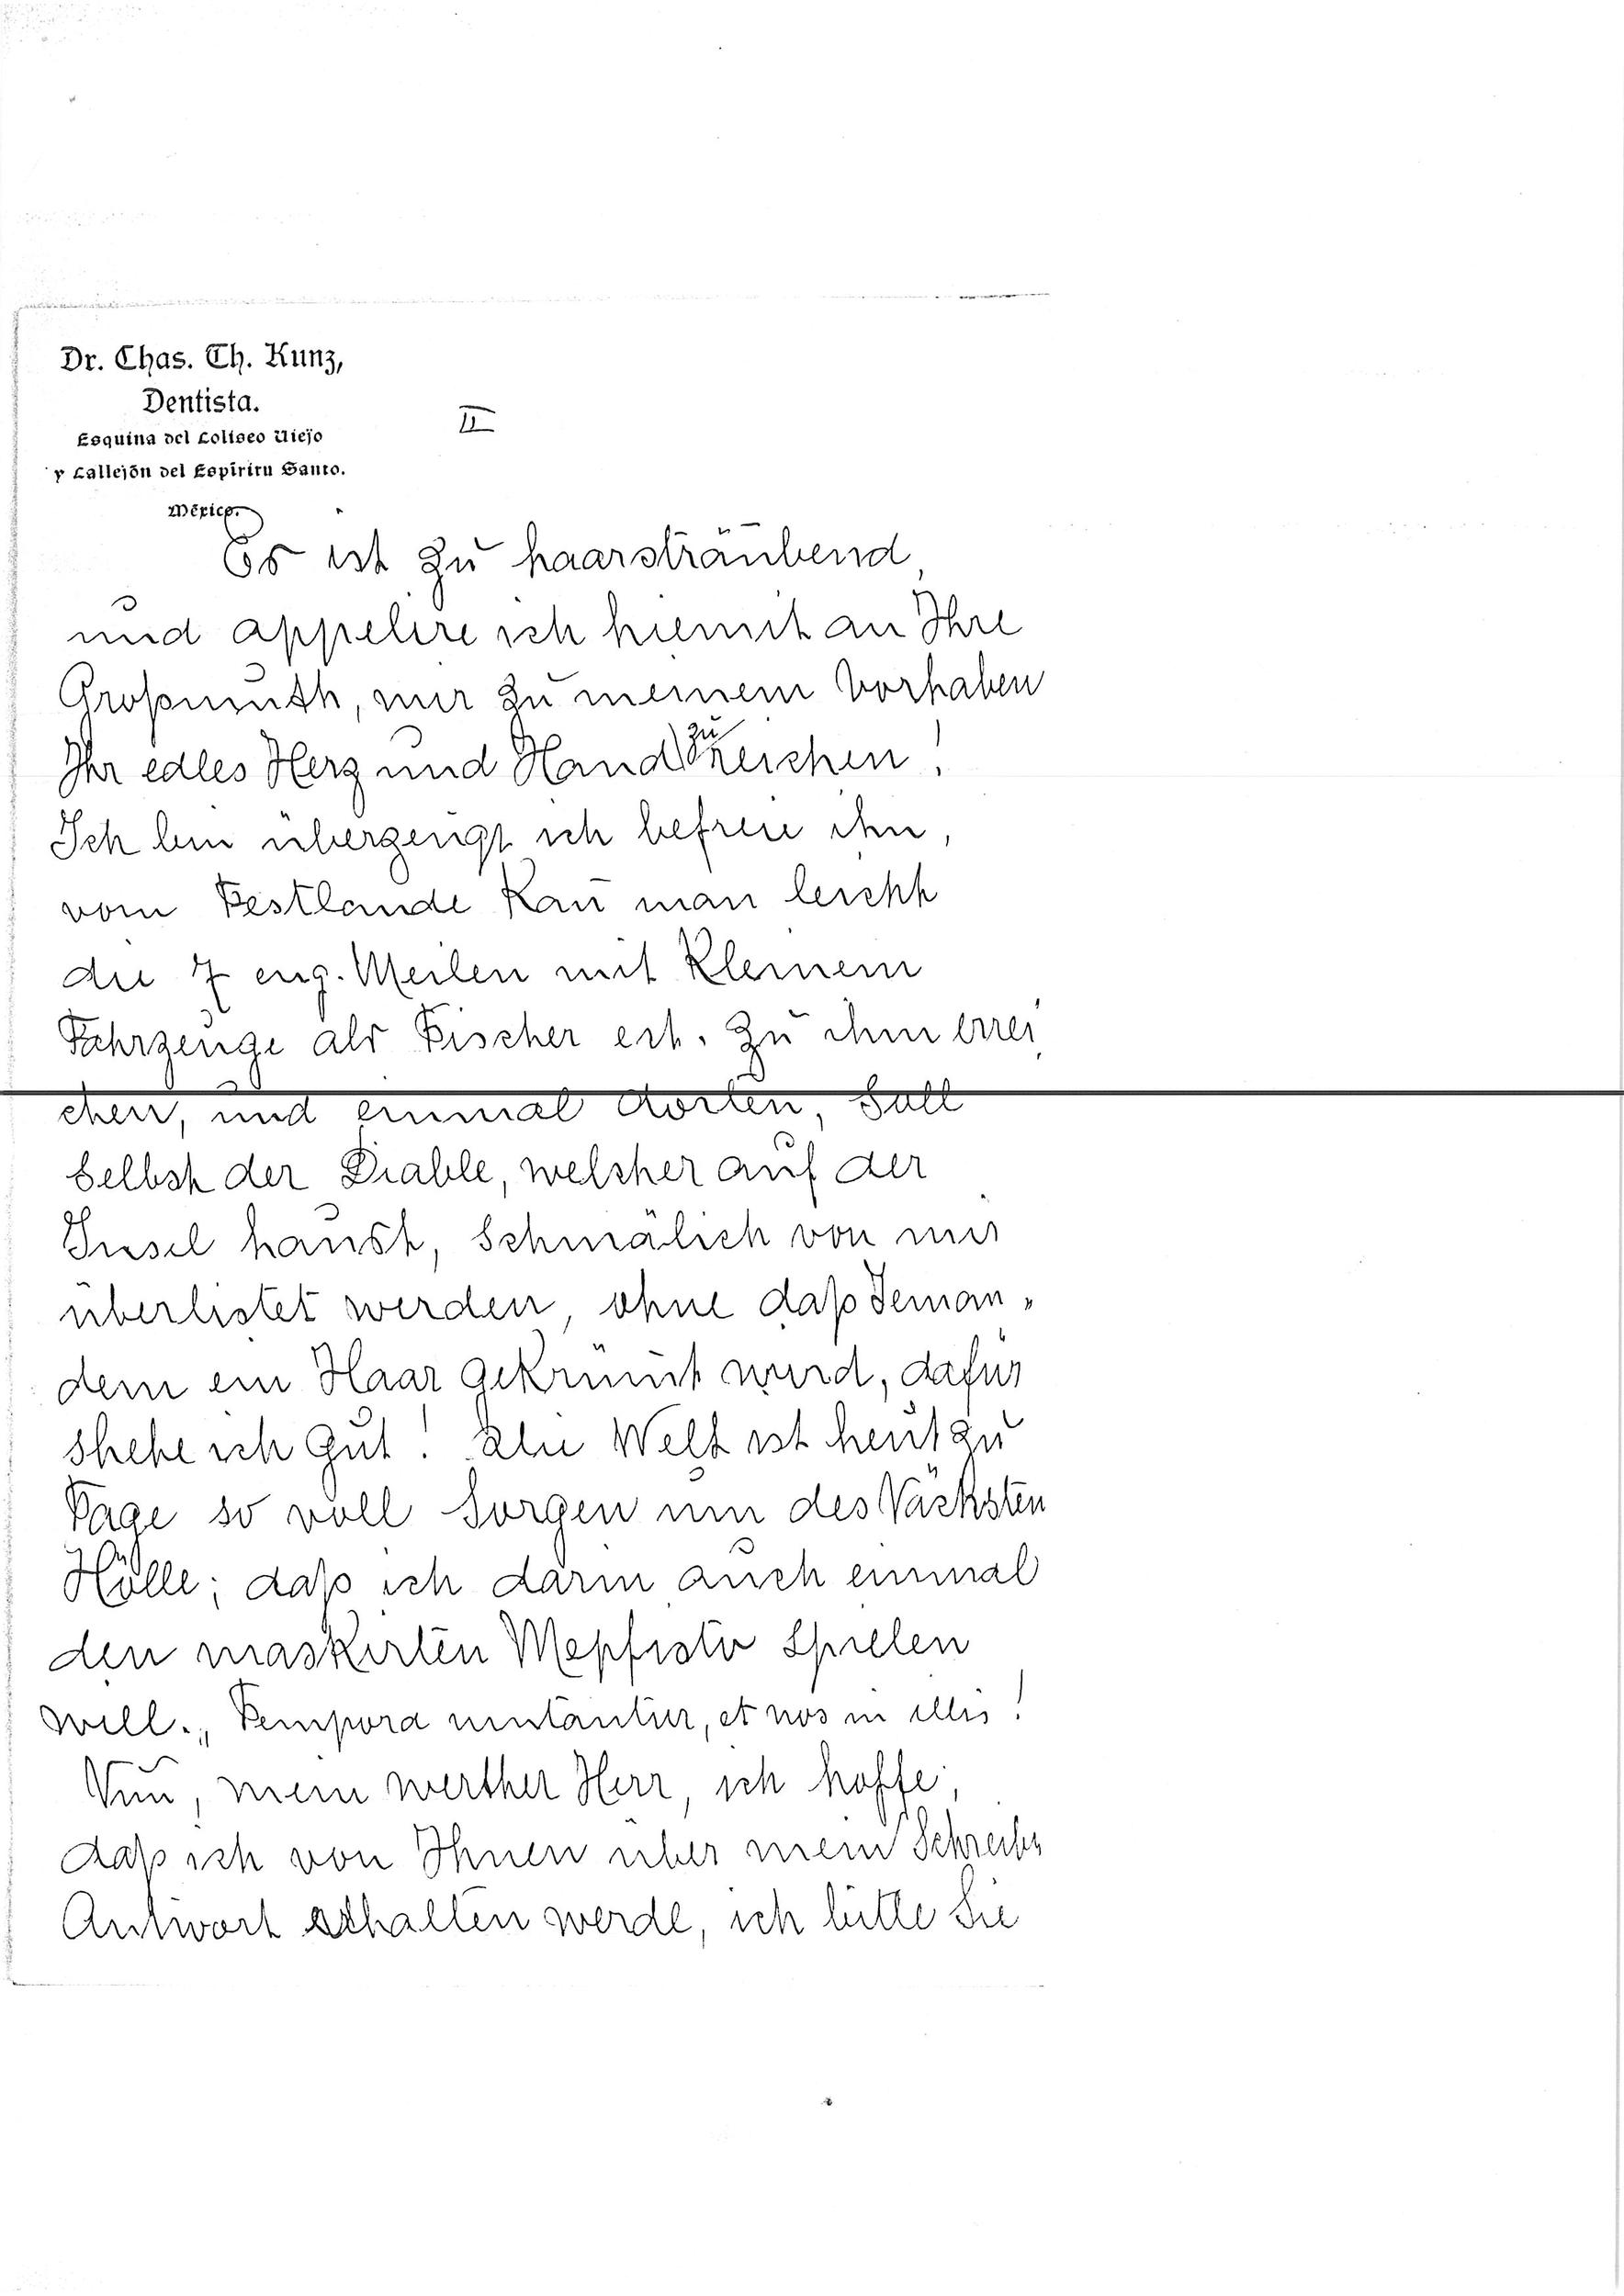 Dr. Chas. Th. Kunz,
Dentista.
Esquina del Coliseo Viejo
y Callejón del Espíritu Santo.
México.
II
Es ist zu haarsträubend,
und appelire ich hiemit an Ihre
Großmuth, mir zu meinem Vorhaben
Ihr edles Herz und Hand zu reichen!
Ich bin überzeugt ich befreie ihn,
vom Festlande kan̄ man leicht
die 7 eng. Meilen mit kleinem
Fahrzeuge als Fischer ect. zu ihm errei
chen, und einmal dorten, Soll
Selbst der Diable, welcher auf der
Insel haust, Schmälich von mir
überlistet werden, ohne daß Jeman„
dem ein Haar gekrümt wird, dafür
stehe ich gut! Die Welt ist heut zu
Tage so voll Sorgen um des Nächsten
Hölle; daß ich darin auch einmal
den maskirten Mepfisto Spielen
will. „Tempora mutantur, et nos in illis!
Nun, mein werther Herr, ich hoffe,
daß ich von Ihnen über mein Schreibn
Antwort erhalten werde, ich bitte Sie